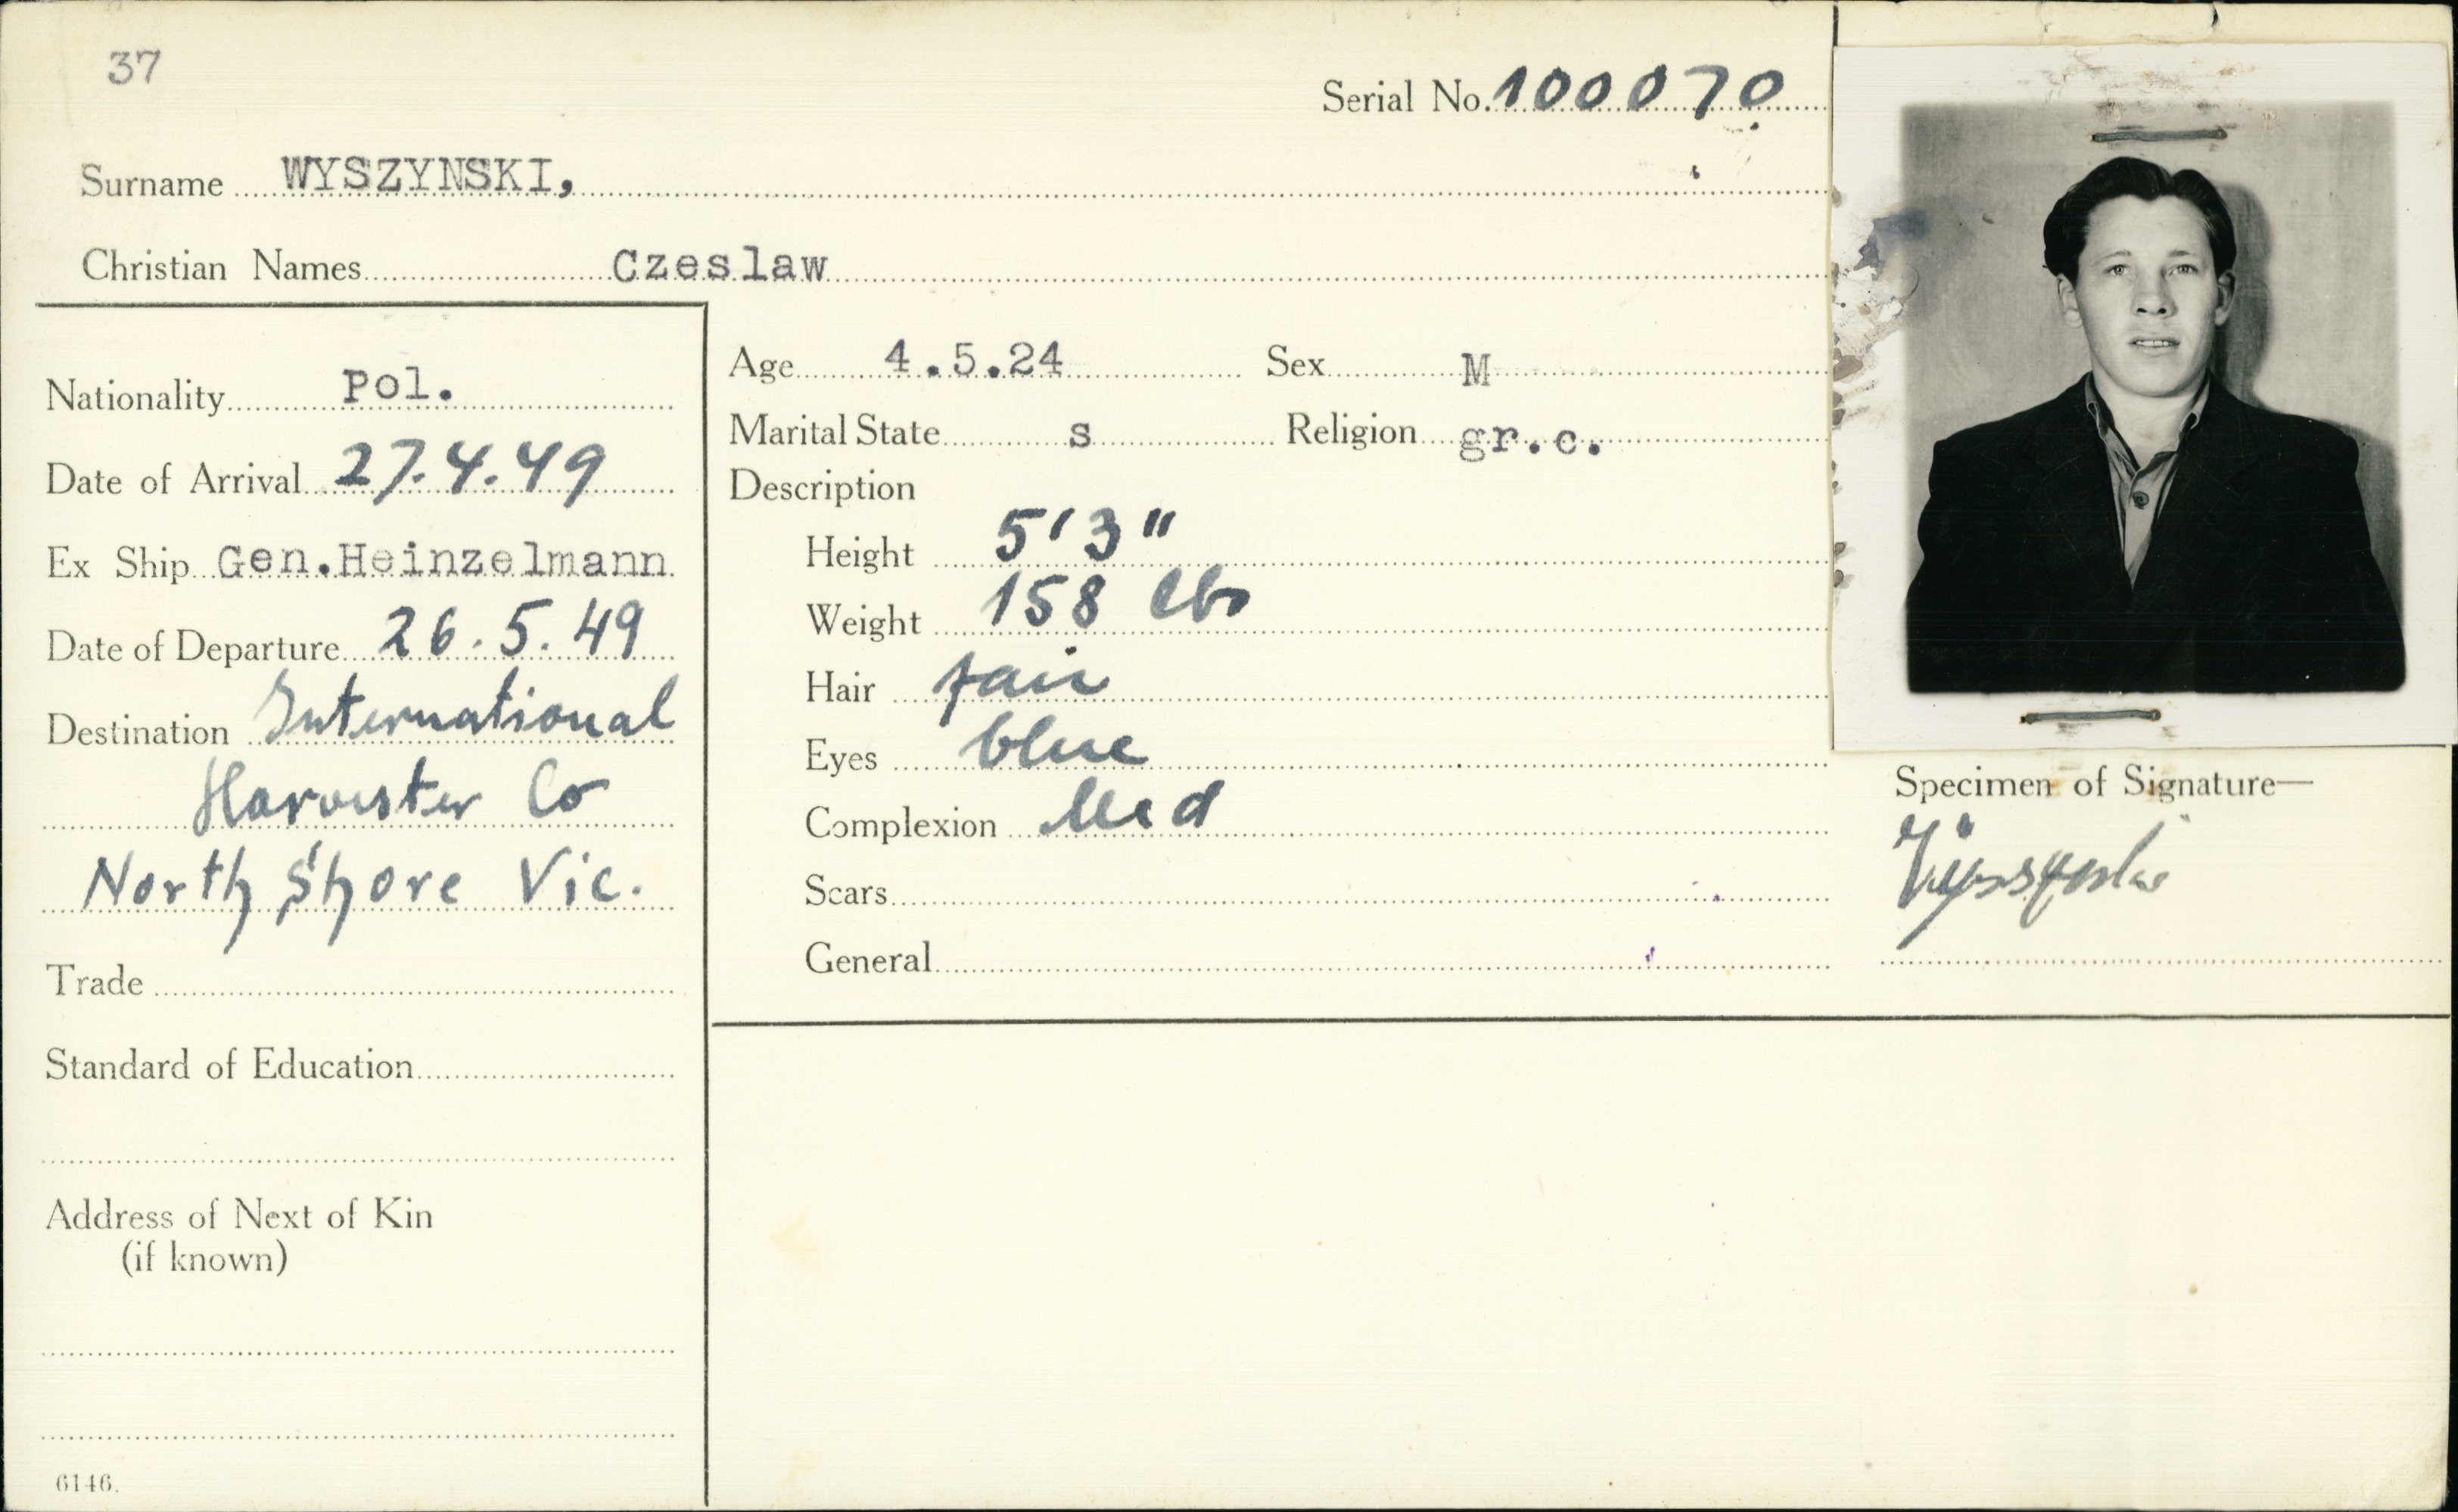 37
Serial No. 100070
Surname WYSZYNSKI,
Christian Names Czeslaw
Nationality Pol.
Date of Arrival 27.4.49
Ex Ship Gen.Heinzelmann
Date of Departure 26.5.49
Destination International
Harvester Co
North Shore Vic.
Trade
Standard of Education
Address of Next of Kin
(if known)
6146.
Age 4.5.24 Sex M
Marital State s Religion gr.c.
Description
Height 5'3"
Weight 158 lbs
Hair fair
Eyes blue
Complexion Med
Scars
General
Specimen of Signature—